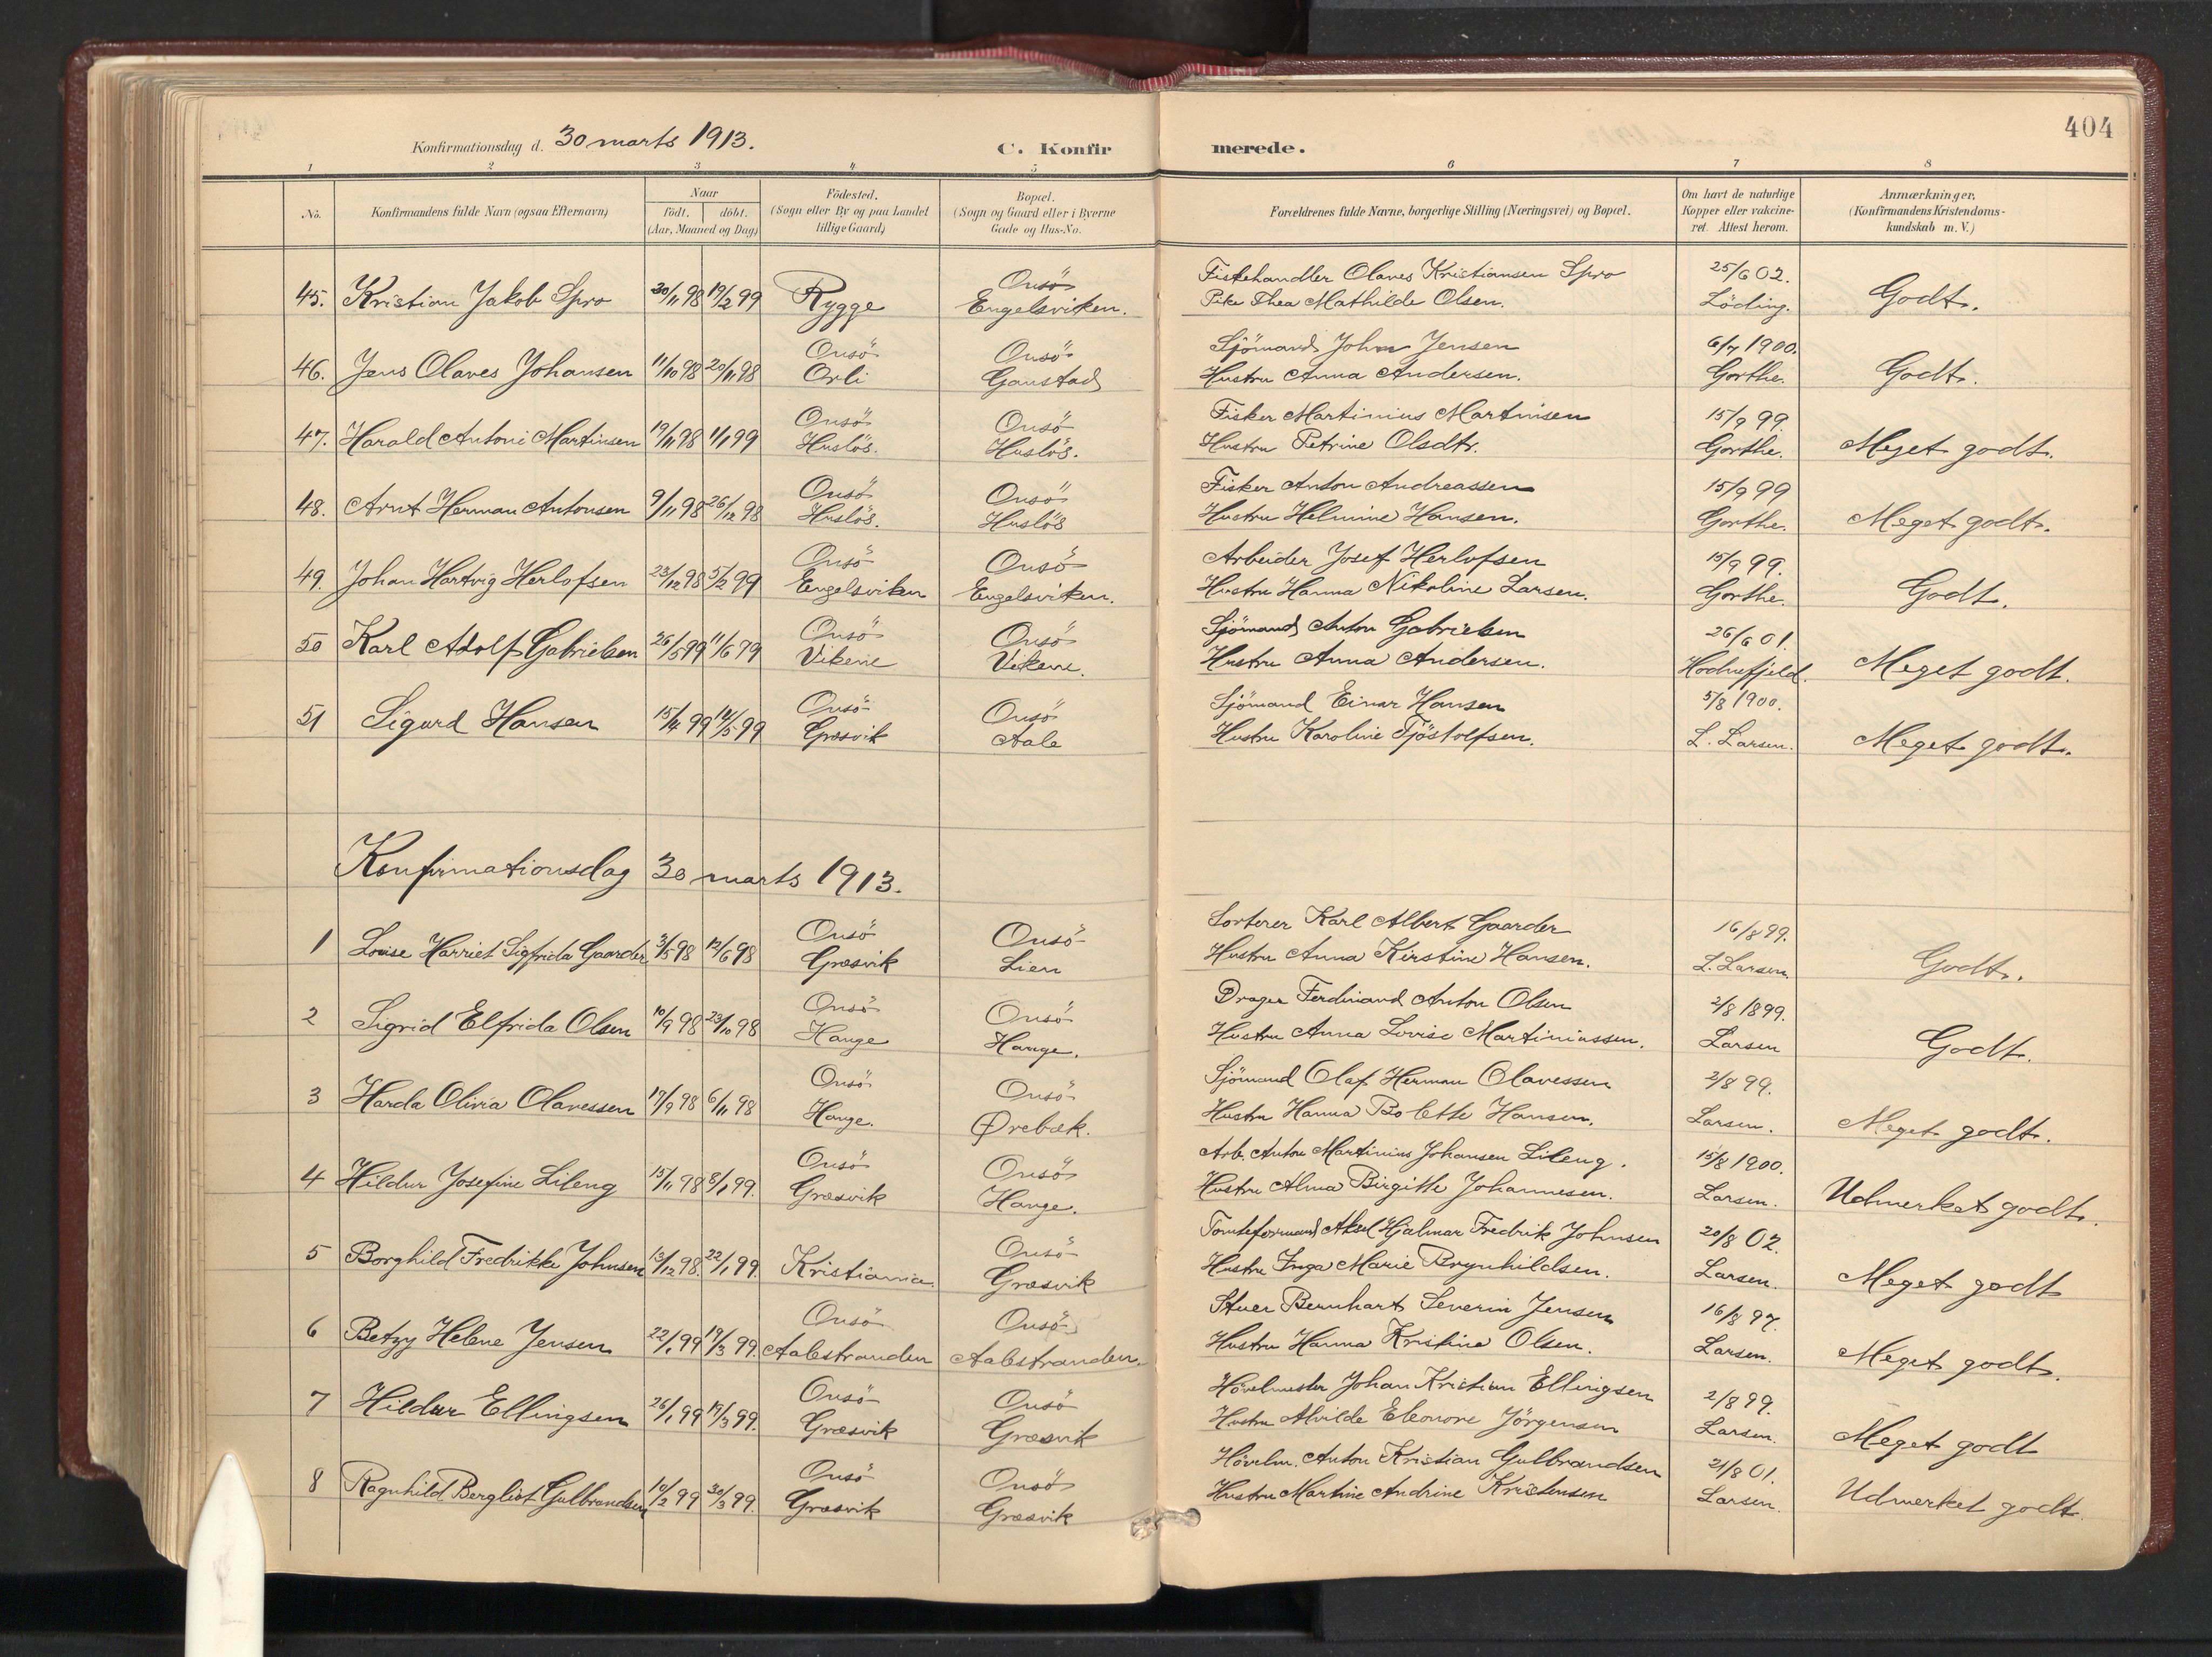 404
Konfirmationsdag d. 30 marts 1913.
C. Konfirmerede.
1 2 3 4 5 6 7 8
No.
Konfirmandens fulde Navn (ogsaa Efternavn)
Naar
födt. döbt.
(Aar, Maaned og Dag)
Födested.
(Sogn eller By og paa Landet
tillige Gaard)
Bopæl.
(Sogn og Gaard eller i Byerne
Gade og Hus-No.
Forældrenes fulde Navne, borgerlige Stilling (Næringsvei) og Bopæl.
Om havt de naturlige
Kopper eller vakcine-
ret. Attest herom.
Anmærkninger.
(Konfirmandens Kristendoms-
kundskab m. V.)
Onsö Fiskehandler Olaves Kristiansen Spro 25/6 02.
45. Kristian Jakob Spro 30/11 98 19/2 99 Rygge Engelsviken. Pike Thea Mathilde Olsen. Löding. Godt.
Onsö Onsö Sjömand Johan Jensen 6/7 1900.
46. Jens Olaves Johansen 11/10 98 20/11 98 Orli Gaustad Hustru Anna Andersen. Gorthe. Godt.
Onsö Onsö Fisker Martinius Martinsen 15/9 99.
47. Harald Antoni Martinsen 19/11 98 1/1 99 Huslös. Huslös. Hustru Petrine Olsdtr. Gorthe. Meget godt.
Onsö Onsö Fisker Anton Andreassen 15/9 99
48. Arnt Herman Antonsen 9/11 98 26/12 98 Huslös. Huslös Hustru Helmine Hansen. Gorthe. Meget godt.
Onsö Onsö Arbeider Josef Herlofsen 15/9 99.
49. Johan Hartvig Herlofsen 23/12 98 5/2 99 Engelsviken Engelsviken. Hustru Hanna Nikoline Larsen. Gorthe. Godt.
Onsö Onsö Sjömand Anton Gabrielsen 26/6 01.
50 Karl Adolf Gabrielsen 26/5 99 11/6 99 Vikene Vikene. Hustru Anna Andersen. Hodnefjeld. Meget godt.
Onsö Onsö Sjömand Einar Hansen 5/8 1900.
51 Sigurd Hansen 15/4 99 14/5 99 Græsvik Aale Hustru Karoline Tjöstolfsen. L. Larsen. Meget godt.
Konfirmationsdag 30 marts 1913.
Onsö Onsö Sorterer Karl Albert Gaarder 16/8 99.
1 Louise Harriet Sigfrida Gaarder 3/5 98 12/6 98 Græsvik Lien Hustru Anna Kirstine Hansen. L. Larsen Godt.
Onsö Onsö Drager Ferdinand Anton Olsen 2/8 1899.
2 Sigrid Elfrida Olsen 10/9 98 23/10 98 Hauge Hauge. Hustru Anna Lovise Martiniussen. Larsen Godt.
Onsö Onsö Sjömand Olaf Herman Olavessen 2/8 99.
3 Harda Olivia Olavessen 17/9 98 6/11 98 Hauge. Ørebæk. Hustru Hanna Bolette Hansen. Larsen. Meget godt.
Onsö Onsö Arb. Anton Martinius Johansen Lileng. 15/8 1900.
4 Hildur Josefine Lileng 15/11 98 8/1 99. Græsvik Hauge. Hustru Alma Birgitte Johannesen. Larsen. Udmerket godt.
Onsö Tomteformand Aksel Hjalmar Fredrik Johnsen 20/8 02.
5 Borghild Fredrikke Johnsen 13/12 98. 22/1 99. Kristiania. Græsvik Hustru Inga Marie Brynhildsen. Larsen. Meget godt
Onsö Onsö Stuer Bernhart Severin Jensen 16/8 97.
6 Betzy Helene Jensen 22/1 99 19/3 99. Aalestranden Aalestranden. Hustru Hanna Kristine Olsen. Larsen. Meget godt.
Onsö Onsö Hövelmester Johan Kristian Ellingsen 2/8 99.
7 Hildur Ellingsen 26/1 99 19/3 99. Græsvik Græsvik Hustru Alvilde Eleonore Jörgensen Larsen. Meget godt
Onsö Onsö Hövelm. Anton Kristian Gulbrandsen 21/8 01.
8 Ragnhild Bergliot Gulbrandsen 14/2 99 30/3 99. Græsvik Græsvik Hustru Martine Andrine Kristensen Larsen. Udmerket godt.